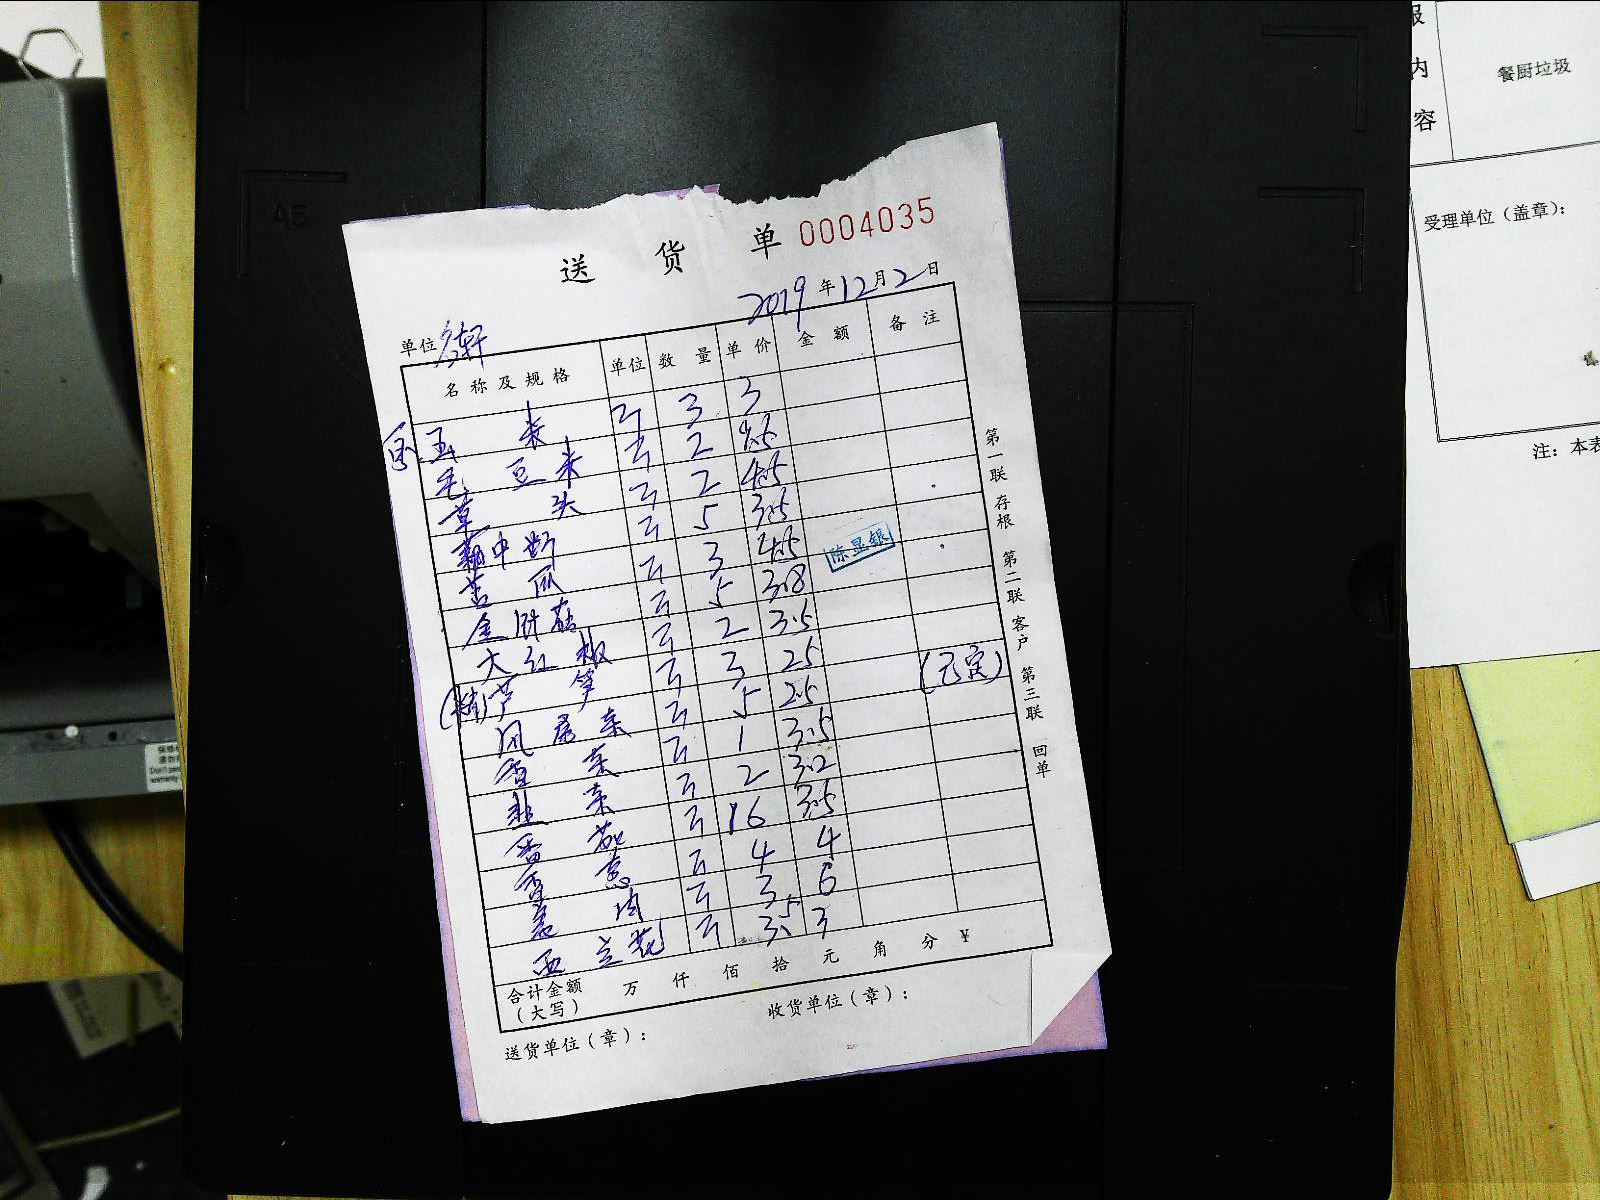 送 货 单 0004035
2019 年 12 月 2 日
单位 轩
名称及规格 单位 数量 单价 金额 备注
玉米 3 3
毛豆米 2
草头 2 4.5
5 3.5
苦瓜 3 4.5
金针菇 5 3.8
大红椒 2 3.5
芦笋 3 25
凤尾菜 5 2.5
香菜 1 3.5
韭菜 2 3.2
香菇 16 3.5
香葱 4 4
3 6
西兰花 3.5 3
陈显银
合计金额（大写） 万 仟 佰 拾 元 角 分 ¥
送货单位（章）： 收货单位（章）：
第一联 存根 第二联 客户 第三联 回单
内
容
餐厨垃圾
受理单位（盖章）：
注：本表
A5